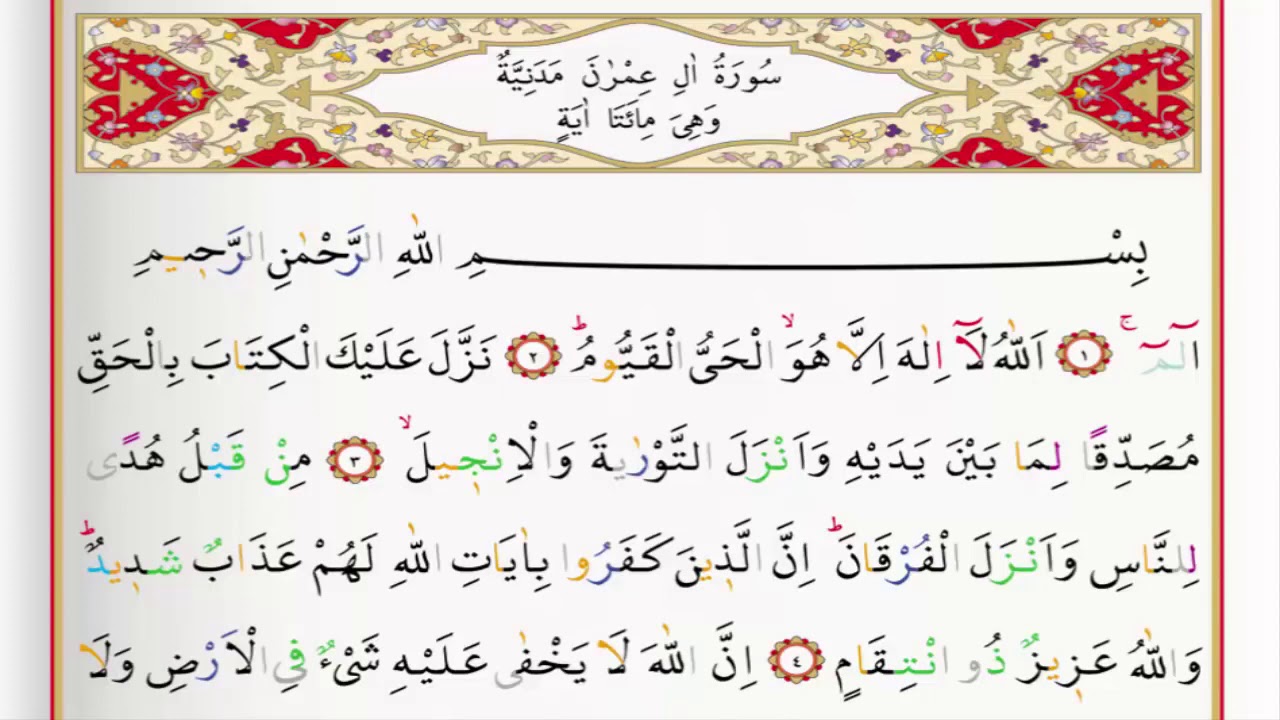 سُورَةُ اٰلِ عِمْرٰنَ مَدَنِيَّةٌ
وَهِىَ مِائَتَا اٰيَةٍ
بِسْمِ اللّٰهِ الرَّحْمٰنِ الرَّحٖيمِ
الٓمٓۚ ﴿١﴾ اَللّٰهُ لَٓا اِلٰهَ اِلَّا هُوَۙ الْحَىُّ الْقَيُّومُؕ ﴿٢﴾ نَزَّلَ عَلَيْكَ الْكِتَابَ بِالْحَقِّ
مُصَدِّقًا لِمَا بَيْنَ يَدَيْهِ وَاَنْزَلَ التَّوْرٰيةَ وَالْاِنْجٖيلَۙ ﴿٣﴾ مِنْ قَبْلُ هُدًى
لِلنَّاسِ وَاَنْزَلَ الْفُرْقَانَؕ اِنَّ الَّذٖينَ كَفَرُوا بِاٰيَاتِ اللّٰهِ لَهُمْ عَذَابٌ شَدٖيدٌؕ
وَاللّٰهُ عَزٖيزٌ ذُو انْتِقَامٍ ﴿٤﴾ اِنَّ اللّٰهَ لَا يَخْفٰى عَلَيْهِ شَىْءٌ فِى الْاَرْضِ وَلَا